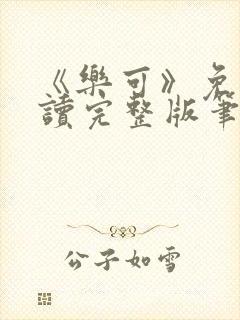 《樂可》免
讀完整版筆
公子如雪